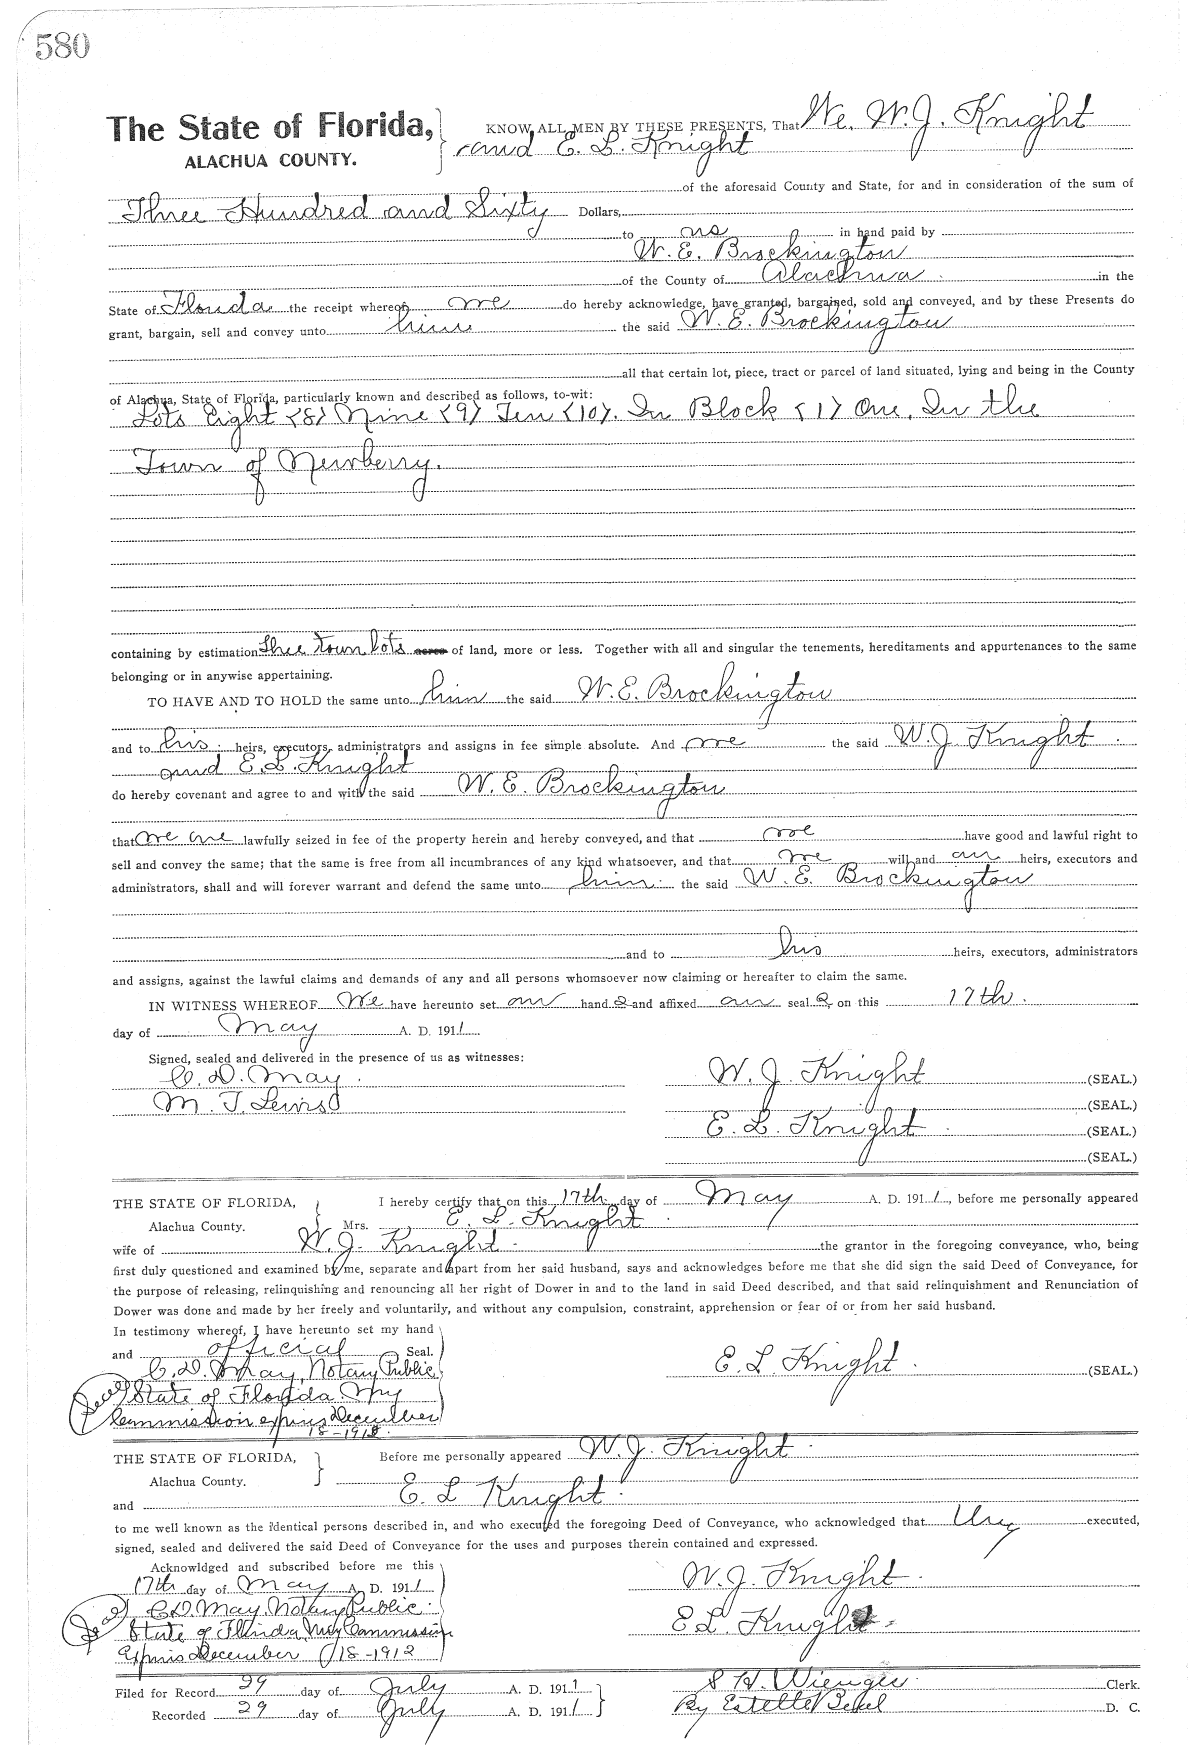 580
The State of Florida, KNOW ALL MEN BY THESE PRESENTS, That We, W. J. Knight
ALACHUA COUNTY. and E. L. Knight
of the aforesaid County and State, for and in consideration of the sum of
Three Hundred and Sixty Dollars,
to us in hand paid by
W. E. Brockington
of the County of Alachua in the
State of Florida the receipt whereof we do hereby acknowledge, have granted, bargained, sold and conveyed, and by these Presents do
grant, bargain, sell and convey unto him the said W. E. Brockington
all that certain lot, piece, tract or parcel of land situated, lying and being in the County
of Alachua, State of Florida, particularly known and described as follows, to-wit:
Lots Eight (8) Nine (9) Ten (10). In Block (1) One. In the
Town of Newberry.
containing by estimation Three town lots acres of land, more or less. Together with all and singular the tenements, hereditaments and appurtenances to the same
belonging or in anywise appertaining.
TO HAVE AND TO HOLD the same unto him the said W. E. Brockington
and to his heirs, executors, administrators and assigns in fee simple absolute. And we the said W. J. Knight
and E. L. Knight
do hereby covenant and agree to and with the said W. E. Brockington
that we are lawfully seized in fee of the property herein and hereby conveyed, and that we have good and lawful right to
sell and convey the same; that the same is free from all incumbrances of any kind whatsoever, and that we will and our heirs, executors and
administrators, shall and will forever warrant and defend the same unto him the said W. E. Brockington
and to his heirs, executors, administrators
and assigns, against the lawful claims and demands of any and all persons whomsoever now claiming or hereafter to claim the same.
IN WITNESS WHEREOF We have hereunto set our hand s and affixed our seal s on this 17th.
day of May A. D. 1911
Signed, sealed and delivered in the presence of us as witnesses:
C. D. May. W. J. Knight (SEAL.)
M. T. Lewis (SEAL.)
E. L. Knight (SEAL.)
(SEAL.)
THE STATE OF FLORIDA, I hereby certify that on this 17th day of May A. D. 1911, before me personally appeared
Alachua County. Mrs. E. L. Knight
wife of W. J. Knight the grantor in the foregoing conveyance, who, being
first duly questioned and examined by me, separate and apart from her said husband, says and acknowledges before me that she did sign the said Deed of Conveyance, for
the purpose of releasing, relinquishing and renouncing all her right of Dower in and to the land in said Deed described, and that said relinquishment and Renunciation of
Dower was done and made by her freely and voluntarily, and without any compulsion, constraint, apprehension or fear of or from her said husband.
In testimony whereof, I have hereunto set my hand
and official Seal.
C. D. May, Notary Public E. L Knight (SEAL.)
Seal State of Florida My
Commission expires December
18-1912.
THE STATE OF FLORIDA, Before me personally appeared W. J. Knight
Alachua County.
and E. L Knight
to me well known as the identical persons described in, and who executed the foregoing Deed of Conveyance, who acknowledged that they executed,
signed, sealed and delivered the said Deed of Conveyance for the uses and purposes therein contained and expressed.
Acknowldged and subscribed before me this
17th day of May A. D. 1911 W. J. Knight
Seal C. D. May, Notary Public
State of Florida My Commission E L. Knight
Expires December 18-1912
Filed for Record 29 day of July A. D. 1911 S H. Wienges Clerk.
Recorded 29 day of July A. D. 1911 By Estelle D. C.